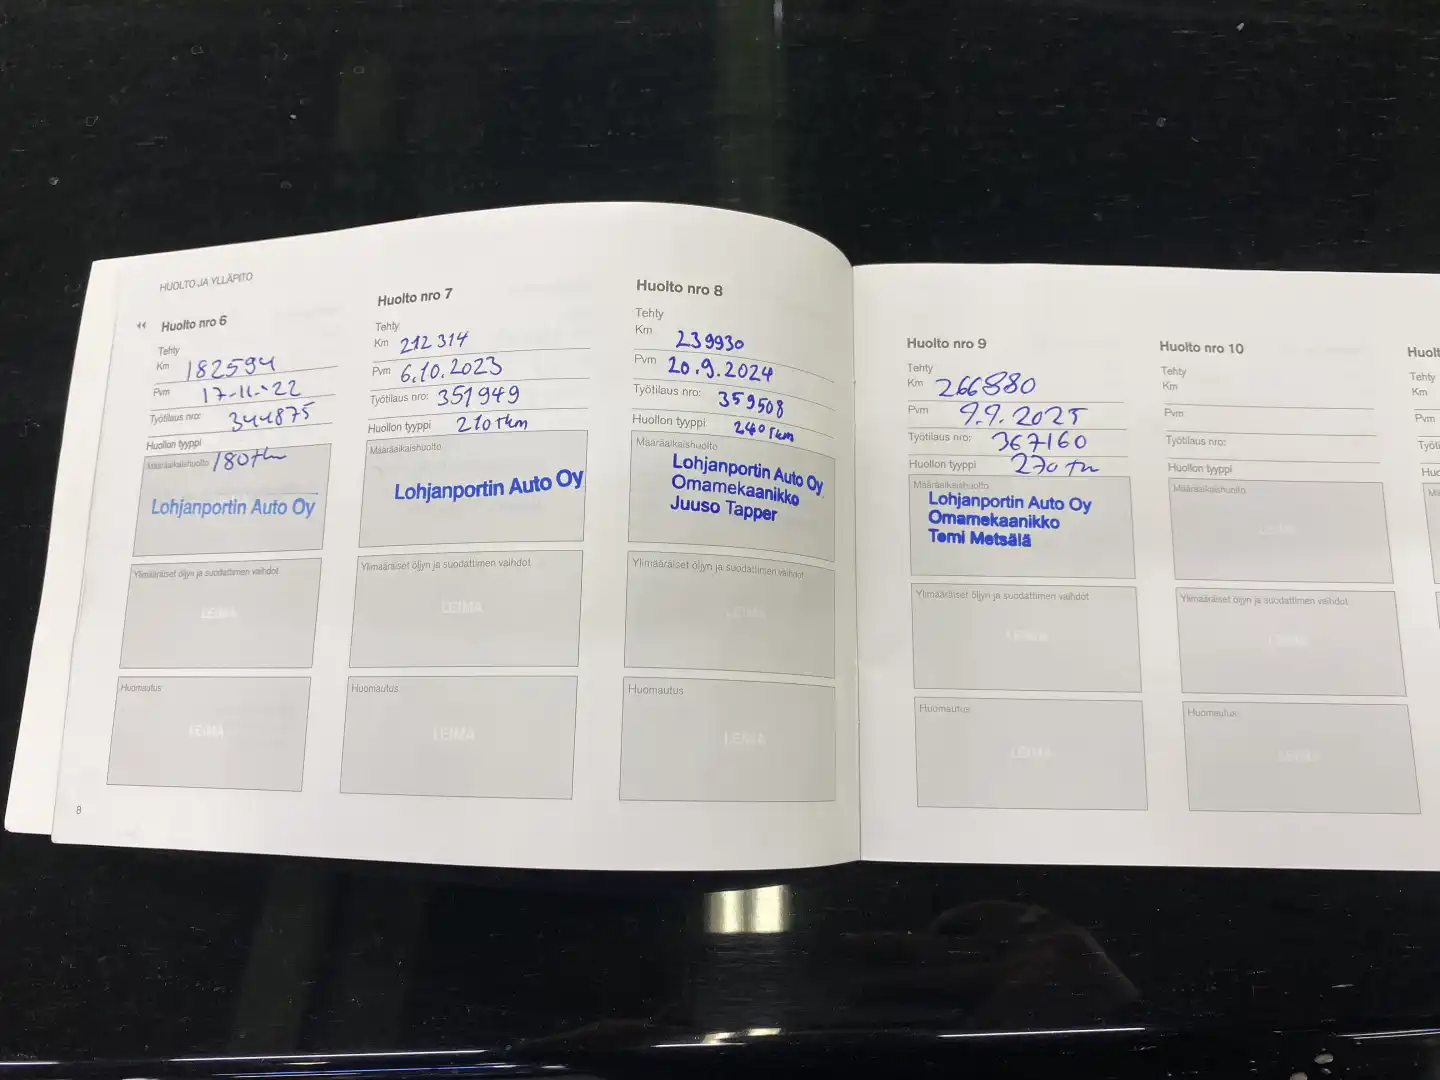 HUOLTO JA YLLÄPITO
Huolto nro 6
Tehty
Km 182594
Pvm 17-11-'22
Työtilaus nro: 344875
Huollon tyyppi
Määräaikaishuolto 180tkm
Lohjanportin Auto Oy
Ylimääräiset öljyn ja suodattimen vaihdot
LEIMA
Huomautus
LEIMA
8
Huolto nro 7
Tehty
Km 212 314
Pvm 6.10.2023
Työtilaus nro: 351949
Huollon tyyppi 210Tkm
Määräaikaishuolto
Lohjanportin Auto Oy
Ylimääräiset öljyn ja suodattimen vaihdot
LEIMA
Huomautus
LEIMA
Huolto nro 8
Tehty
Km 239930
Pvm 20.9.2024
Työtilaus nro: 359508
Huollon tyyppi 240Tkm
Määräaikaishuolto
Lohjanportin Auto Oy
Omamekaanikko
Juuso Tapper
Ylimääräiset öljyn ja suodattimen vaihdot
LEIMA
Huomautus
LEIMA
Huolto nro 9
Tehty
Km 266880
Pvm 9.9.2025
Työtilaus nro: 367160
Huollon tyyppi 270 tkm
Määräaikaishuolto
Lohjanportin Auto Oy
Omamekaanikko
Tomi Metsälä
Ylimääräiset öljyn ja suodattimen vaihdot
LEIMA
Huomautus
LEIMA
Huolto nro 10
Tehty
Km
Pvm
Työtilaus nro:
Huollon tyyppi
Määräaikaishuolto
LEIMA
Ylimääräiset öljyn ja suodattimen vaihdot
LEIMA
Huomautus
LEIMA
Tehty
Km
Pvm